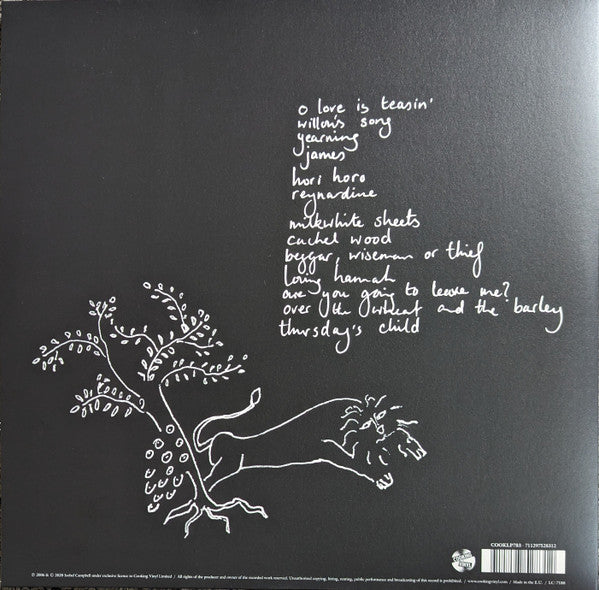 o love is teasin'
willow's song
yearning
james
hori horo
reynardine
milkwhite sheets
cachel wood
beggar, wiseman or thief
loving hannah
are you going to leave me?
over the wheat and the barley
thursday's child
COOKLP785 · 711297528312
COOKING VINYL
℗ 2006 & © 2020 Isobel Campbell under exclusive licence to Cooking Vinyl Limited / All rights of the producer and owner of the recorded work reserved. Unauthorised copying, hiring, renting, public performance and broadcasting of this record is prohibited. / www.cookingvinyl.com / Made in the E.U. / LC-7188